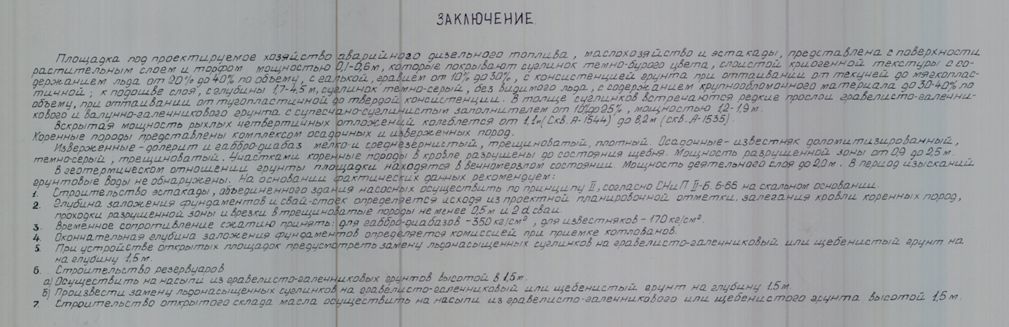 ЗАКЛЮЧЕНИЕ
Площадка под проектируемое хозяйство аварийного дизельного топлива, маслохозяйство и эстакады, представлена с поверхности
растительным слоем и торфом мощностью 0,1-0,6м, которые покрывают суглинок темно-бурого цвета, слоистой криогенной текстуры с со-
держанием льда от 20% до 40% по объему, с галькой, гравием от 10% до 30%, с консистенцией грунта при оттаивании от текучей до мягкоплас-
тичной; к подошве слоя, с глубины 1,7-4,5 м, суглинок темно-серый, без видимого льда, с содержанием крупнообломочного материала до 30-40% по
объему, при оттаивании от тугопластичной до твердой консистенции. В толще суглинков встречаются редкие прослои гравелисто-галечни-
кового и валунно-галечникового грунта с супесчано-суглинистым заполнителем от 10% до 25%, мощностью 1,2-1,9 м.
Вскрытая мощность рыхлых четвертичных отложений колеблется от 1,1м (Скв. А-1544) до 8,2м (скв. А-1535).
Коренные породы представлены комплексом осадочных и изверженных пород.
Изверженные-долерит и габбро-диабаз мелко и среднезернистый, трещиноватый, плотный. Осадочные-известняк доломитизированный,
темно-серый, трещиноватый. Участками коренные породы в кровле разрушены до состояния щебня. Мощность разрушенной зоны от 0,9 до 2,5м.
В геотермическом отношении грунты площадки находятся в вечномерзлом состоянии. Мощность деятельного слоя до 2,0м. В период изысканий
грунтовые воды не обнаружены. На основании фактических данных рекомендуем:
1. Строительство эстакады, объединенного здания насосных осуществить по принципу II, согласно СНиП II-Б. 6-66 на скальном основании.
2. Глубина заложения фундаментов и свай-стоек определяется исходя из проектной планировочной отметки, залегания кровли коренных пород,
проходки разрушенной зоны и врезки в трещиноватые породы не менее 0,5м и 2d сваи.
3. Временное сопротивление сжатию принять: для габбро-диабазов -350 кг/см², для известняков -170 кг/см².
4. Окончательная глубина заложения фундаментов определяется комиссией при приемке котлованов.
5. При устройстве открытых площадок предусмотреть замену льдонасыщенных суглинков на гравелисто-галечниковый или щебенистый грунт на
на глубину 1,5м.
6. Строительство резервуаров
а) Осуществить на насыпи из гравелисто-галечниковых грунтов высотой в 1,5м.
б) Произвести замену льдонасыщенных суглинков на гравелисто-галечниковый или щебенистый грунт на глубину 1.5м.
7. Строительство открытого склада масла осуществить на насыпи из гравелисто-галечникового или щебенистого грунта высотой 1,5м.